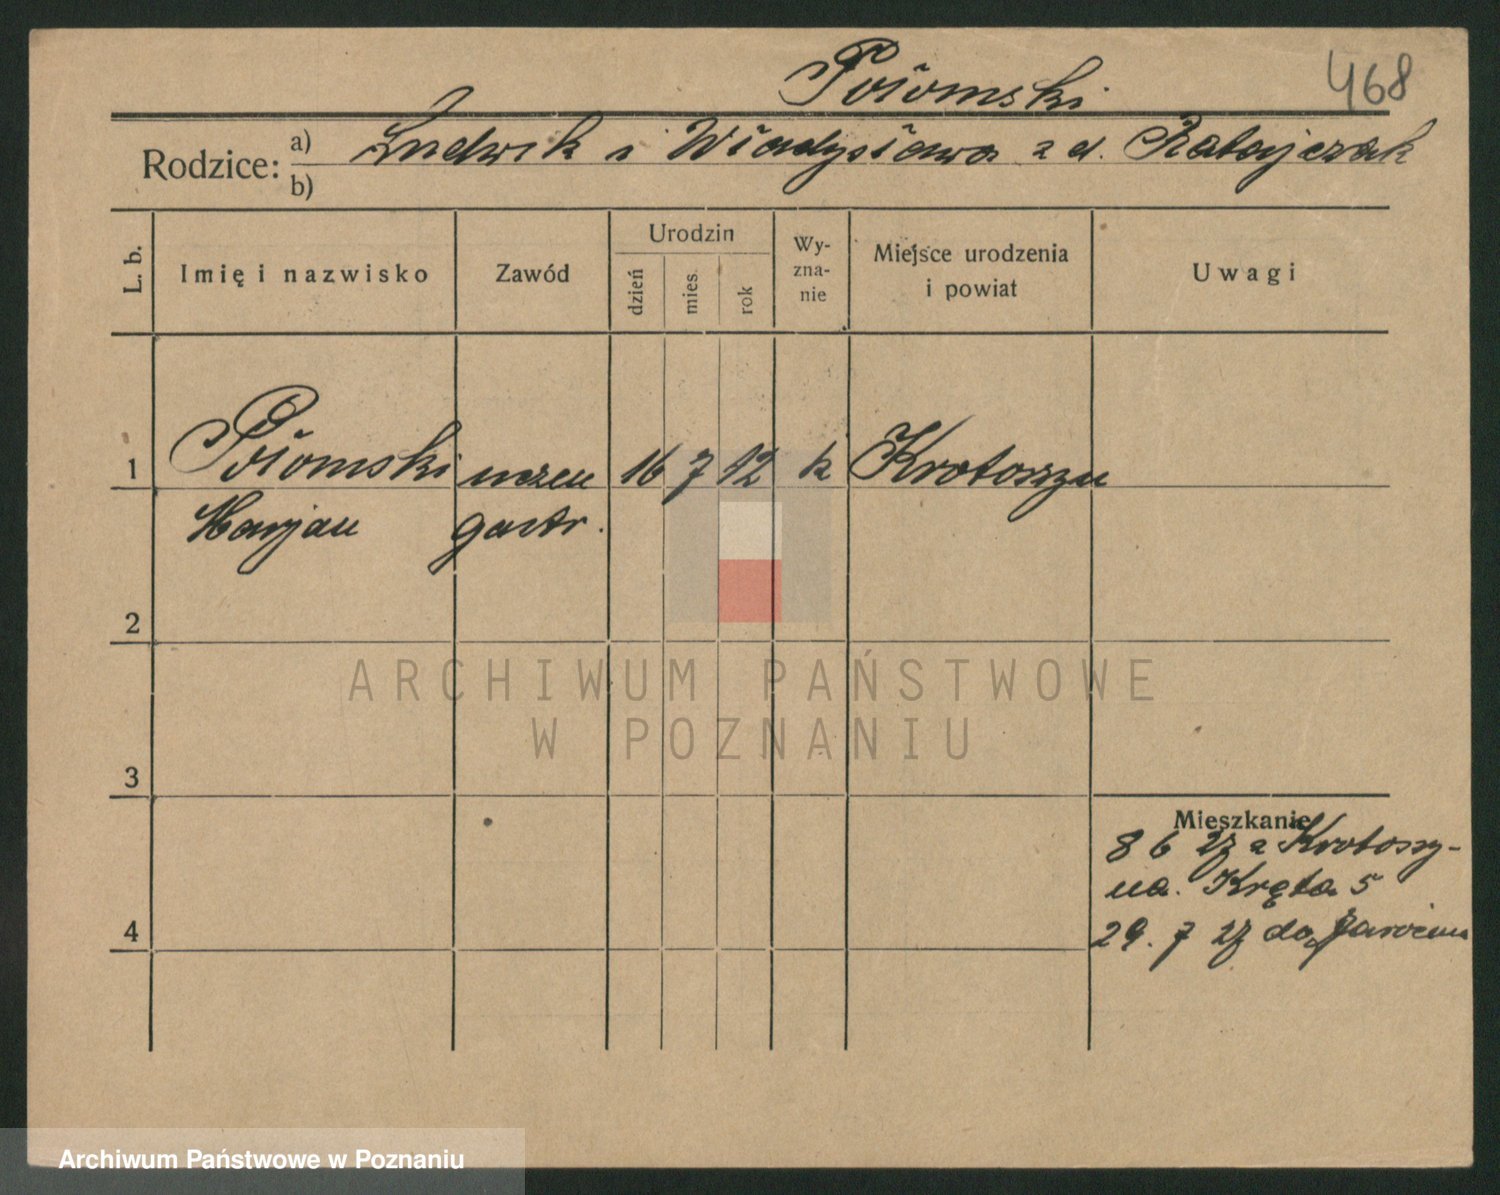 Połomski 468
Rodzice: a) Ludwik i Władysława z d. Ratajczak
b)
L. b. Imię i nazwisko Zawód Urodzin dzień mies. rok Wy-zna-nie Miejsce urodzenia i powiat Uwagi
1 Połomski uczeń 16 7 12 k Krotoszyn
Marjan gastr.
2
ARCHIWUM PAŃSTWOWE
W POZNANIU
3
Mieszkanie
8 6 27 z Krotoszy-
na. Kręta 5
4 29. 7 27 do Jarocina
Archiwum Państwowe w Poznaniu